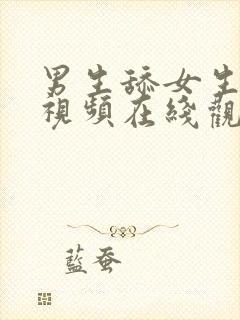 男生舔女生
視頻在綫觀
藍蚕